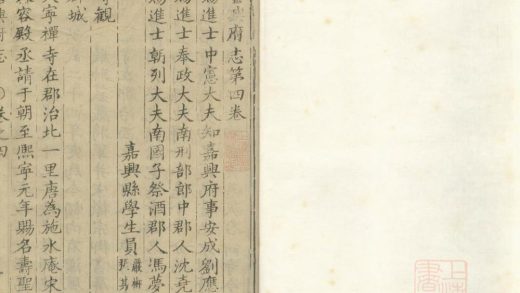 府志第四卷
賜進士中憲大夫知嘉興府事安成劉應
賜進士奉政大夫南刑部郎中郡人沈堯
賜進士朝列大夫南國子祭酒郡人馮夢
嘉興縣學生員
觀
城
寧禪寺在郡治北一里唐為施水庵宋
容殿丞請于朝至熙寧元年賜名壽聖
府志 卷之四